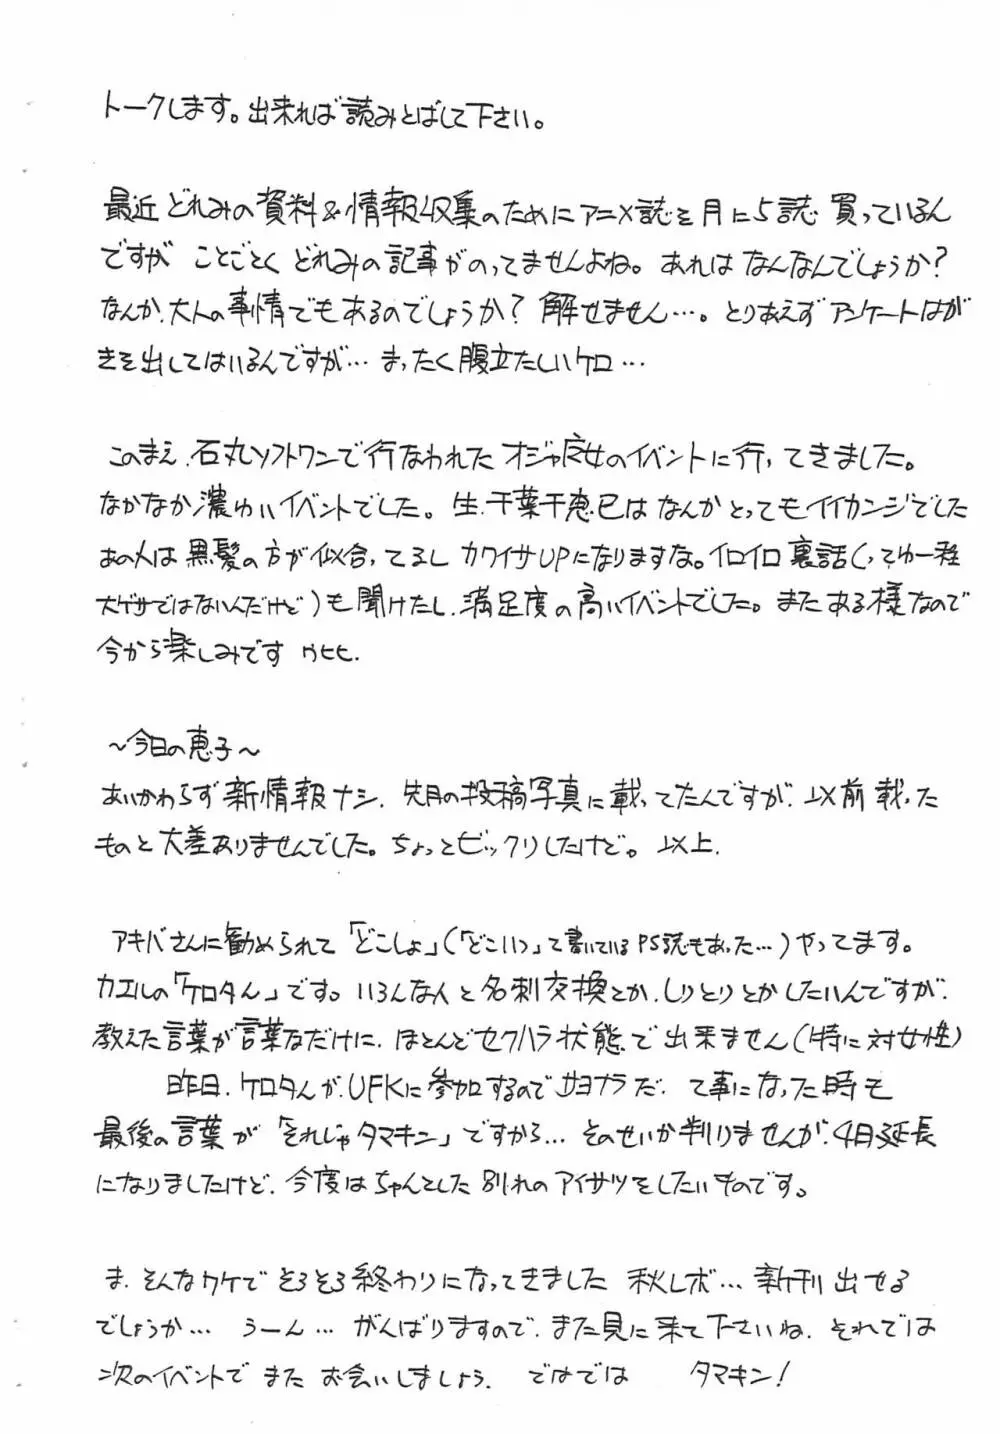 トークします。出来れば読みとばして下さい。
最近どれみの資料&情報収集のためにアニメ誌を月に5誌買っているん
ですが ことごとくどれみの記事がのってませんよね。あれはなんなんでしょうか?
なんか、大人の事情でもあるのでしょうか?解せません…。とりあえずアンケートはが
きを出してはいるんですが… まったく腹立たしいケロ…
このまえ、石丸ソフトワンで行なわれたオジャ魔女のイベントに行ってきました。
なかなか濃ゆいイベントでした。生、千葉千恵巳はなんかとってもイイカンジでした
あの人は黒髪の方が似合ってるしカワイサUPになりますな。イロイロ裏話(ってゆー程
大ゲサではないんだけど)も聞けたし、満足度の高いイベントでした。またある様なので
今から楽しみです ウヒヒ.
~今日の恵子~
あいかわらず新情報ナシ. 先月の投稿写真に載ってたんですが、以前載った
ものと大差ありませんでした。ちょっとビックリしたけど。以上.
アキバさんに勧められて「どこしょ」(「どこいつ」て書いているPS誌もあった…)やってます。
カエルの「ケロタん」です。いろんな人と名刺交換とか、しりとりとかしたいんですが、
教えた言葉が言葉なだけに、ほとんどセクハラ状態で出来ません(特に対女性)
昨日、ケロタんがUFKに参加するのでサヨナラだ、て事になった時も
最後の言葉が「それじゃタマキン」ですから… そのせいか判りませんが、4日延長
になりましたけど、今度はちゃんとした別れのアイサツをしたいものです。
ま、そんなワケでそろそろ終わりになってきました 秋レボ… 新刊出せる
でしょうか… うーん… がんばりますので、また見に来て下さいね. それでは
次のイベントでまたお会いしましょう. ではでは タマキン!